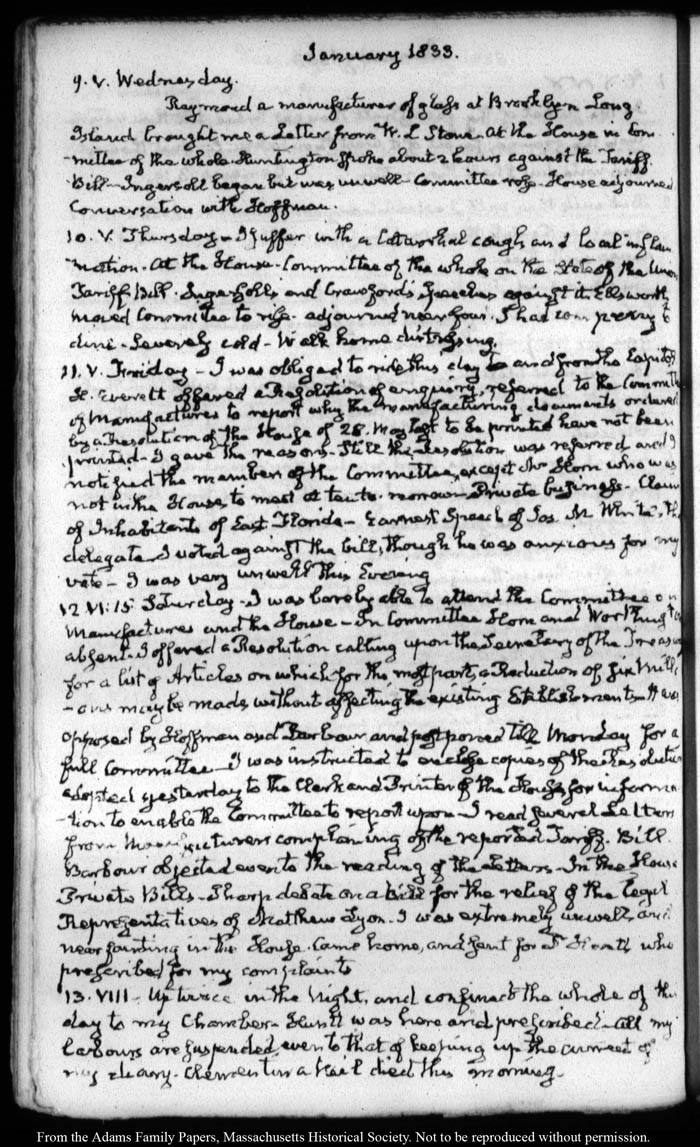 January 1833.
9. V. Wednesday.
Raymond a manufacturer of glass at Brooklyn Long
Island brought me a Letter from W. L. Stone. At the House in Com
-mittee of the whole. Huntington spoke about 2 hours against the Tariff
Bill - Ingersoll began but was unwell - Committee rose - House adjourned
Conversation with Hoffman.
10. V. Thursday - I suffer with a Catarrhal cough and local inflam
-mation. At the House - Committee of the whole on the State of the Union
Tariff Bill. Ingersoll's and Crawford's Speeches against it. Ellsworth
moved Committee to rise - adjourned near four. I had company to
dine - Severely cold - Walk home distressing.
11. V. Friday - I was obliged to ride this day to and from the Capitol
H. Everett offered a Resolution of enquiry, referred to the Committee
of Manufactures to report why the manufacturing documents ordered
by a Resolution of the House of 28. May last to be printed have not been
printed - I gave the reasons - Still the Resolution was referred and I
notified the members of the Committee, except Mr Horn who was
not in the House, to meet at ten to-morrow - Private business - Claims
of Inhabitants of East Florida - Earnest Speech of Jos. M. White, the
delegate. I voted against the bill, though he was anxious for my
vote - I was very unwell this Evening
12 VI:15. Saturday - I was barely able to attend the Committee on
Manufactures and the House - In Committee Horn and Worthington
absent. I offered a Resolution calling upon the Secretary of the Treasury
for a list of Articles on which for the most part, a Reduction of six Milli
-ons may be made, without affecting the existing Establishments - It was
opposed by Hoffman and Barbour and postponed till Monday for a
full Committee - I was instructed to enclose copies of the Resolution
adopted yesterday to the Clerk and Printer of the House for informa
-tion to enable the Committee to report upon - I read several Letters
from Manufacturers complaining of the reported Tariff Bill.
Barbour objected even to the reading of the Letters - In the House
Private Bills - Sharp debate on a bill for the relief of the legal
Representatives of Matthew Lyon. I was extremely unwell, and
near fainting in the House. Came home, and sent for Dr Huntt who
prescribed for my complaints
13. VIII - Up twice in the Night, and confined the whole of the
day to my Chamber - Huntt was here and prescribed - All my
labours are suspended, even to that of keeping up the current of
my diary. Clementina died this morning.
From the Adams Family Papers, Massachusetts Historical Society. Not to be reproduced without permission.